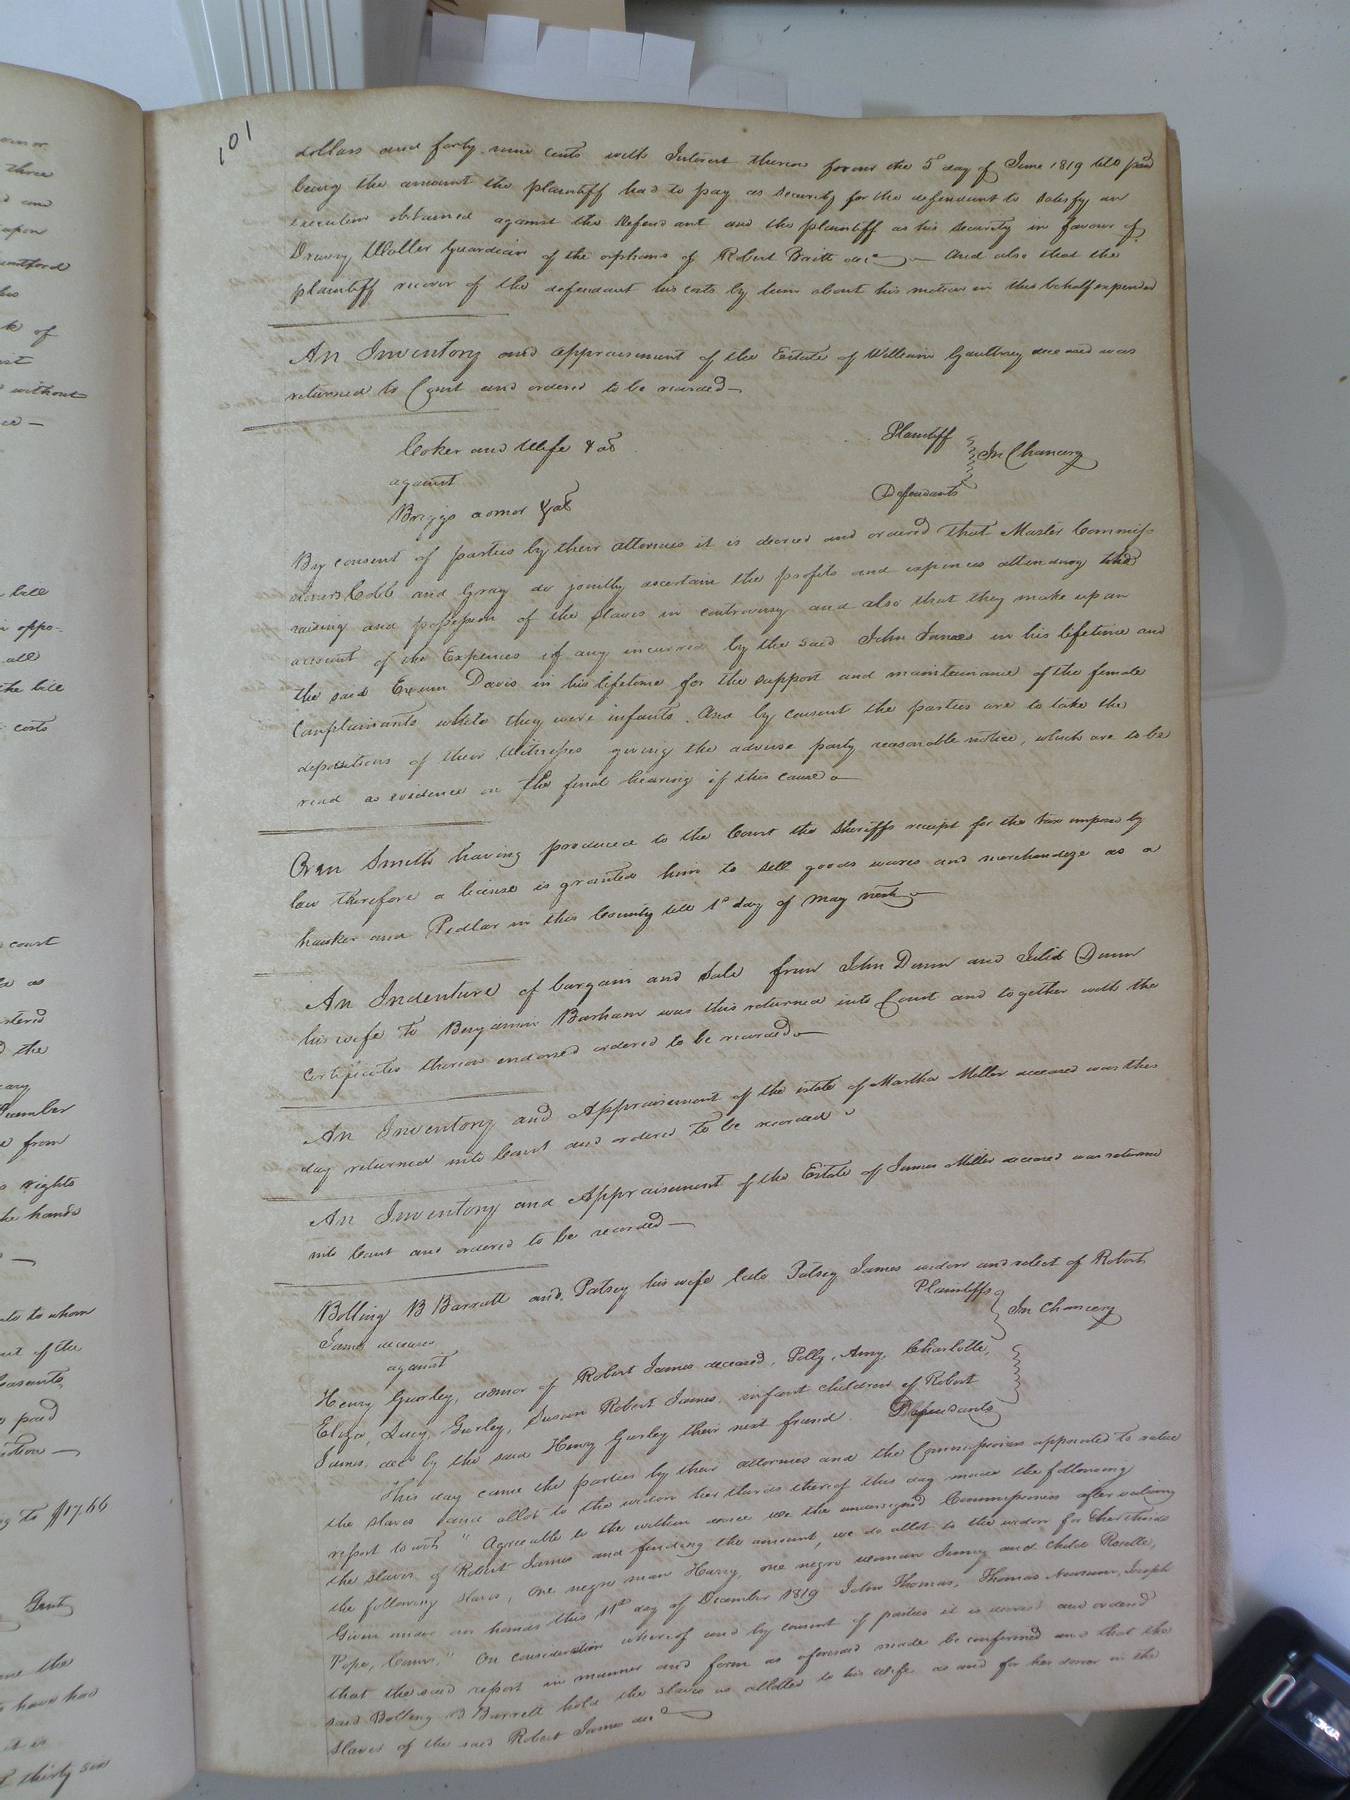 101
dollars and forty nine cents with Interest thereon from the 5th day of June 1819 till paid
being the amount the plaintiff had to pay as security for the defendant to satisfy an
execution obtained against the Defendant and the plaintiff as his security in favour of
Drewry Waller Guardian of the orphans of Robert Britt decd And also that the
plaintiff recover of the defendant his costs by him about his motion in this behalf expended
An Inventory and appraisement of the Estate of William deceased was
returned to Court and ordered to be recorded—
Coker and Wife & als Plaintiff
against In Chancery
Briggs admor & als Defendants
By consent of parties by their attornies it is decreed and ordered that Master Commiss
ioners Cobb and Gray do jointly ascertain the profits and expences attending the
raising and possession of the slaves in controversy and also that they make up an
account of the Expences if any incurred by the said John in his lifetime and
the said Exum Davis in his lifetime for the support and maintenance of the female
Complainants while they were infants. And by consent the parties are to take the
depositions of their Witnesses giving the adverse party reasonable notice, which are to be
read as evidence on the final hearing of this cause
Oren Smith having produced to the Court the Sheriffs receipt for the tax imposed by
law therefore a license is granted him to sell goods wares and merchandize as a
hawker and Pedlar in this County till 1st day of May next
An Indenture of bargain and Sale from John Dunn and Dunn
his wife to Benjamin Barham was this returned into Court and together with the
certificates thereon endorsed ordered to be recorded
An Inventory and Appraisement of the estate of Martha Miller deceased was this
day returned into Court and ordered to be recorded
An Inventory and Appraisement of the Estate of James Miller deceased was returned
into Court and ordered to be recorded—
Bolling B Barrett and Patsey his wife late Patsey James widow and relict of Robert
James deceased Plaintiffs
against In Chancery
Henry Gurley, admor of Robert James deceased, Polly, Amy, Charlotte,
Eliza, Lucy, Gurley, Susan Robert James, infant children of Robert
James, decd by the said Henry Gurley their next friend. Defendants
This day came the parties by their attornies and the Commissioners appointed to value
the slaves and allot to the widow her thirds thereof this day made the following
report to wit: "Agreeable to the within decree we the undersigned Commissioners after valuing
the slaves of Robert James and finding the amount, we do allot to the widow for her thirds
the following slaves, one negro man Harry, one negro woman and child Rosette,
Given under our hands this 11th day of December 1819 John Thomas, Thomas Newsum, Joseph
Pope, Comrs." On consideration whereof and by consent of parties it is decreed and ordered
that the said report in manner and form as aforesaid made be confirmed and that the
said Bolling B Barrett hold the slaves as allotted to his wife as and for her dower in the
slaves of the said Robert James decd
or opposite
without
court
the
from
rights
the hands
to whom
paid
$17.66
thirty six
NOKIA